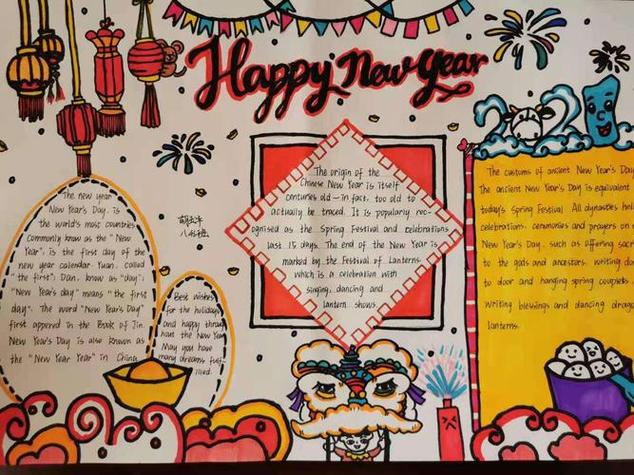 Happy New Year
202
The new year
New Year's Day. is
the world's most countries
commonly know as the "New
Year". is the first day of the
new year calendar Yuan. called
"the first"; Dan. know as "day";
"New Year's day" means "the first
day". The word "New Year's Day"
first appered in the Book of Jin
New Year's Day is also known as
the "New Year Year" in China
Best wishes
for the holidays
and happy throug
hout the New Year
May you have
many dreams fulf
illed.
The origin of the
Chinese New Year is itself
centuries old - in fact, too old to
actually be traced. It is popularly rec-
ognised as the Spring Festival and celebrations
last 15 days. The end of the New Year is
marked by the Festival of Lanterns
which is a celebration with
singing, dancing and
lantern shows.
The customs of ancient New Year's Day
The ancient New Year's Day is equivalent
today's Spring Festival. All dynasties hol
celebrations, ceremonies and prayers on
New Year's Day. such as offering sacr
to the gods and ancestors, writing do
to door and hanging spring couplets
writing blessings and dancing drago
lanterns.